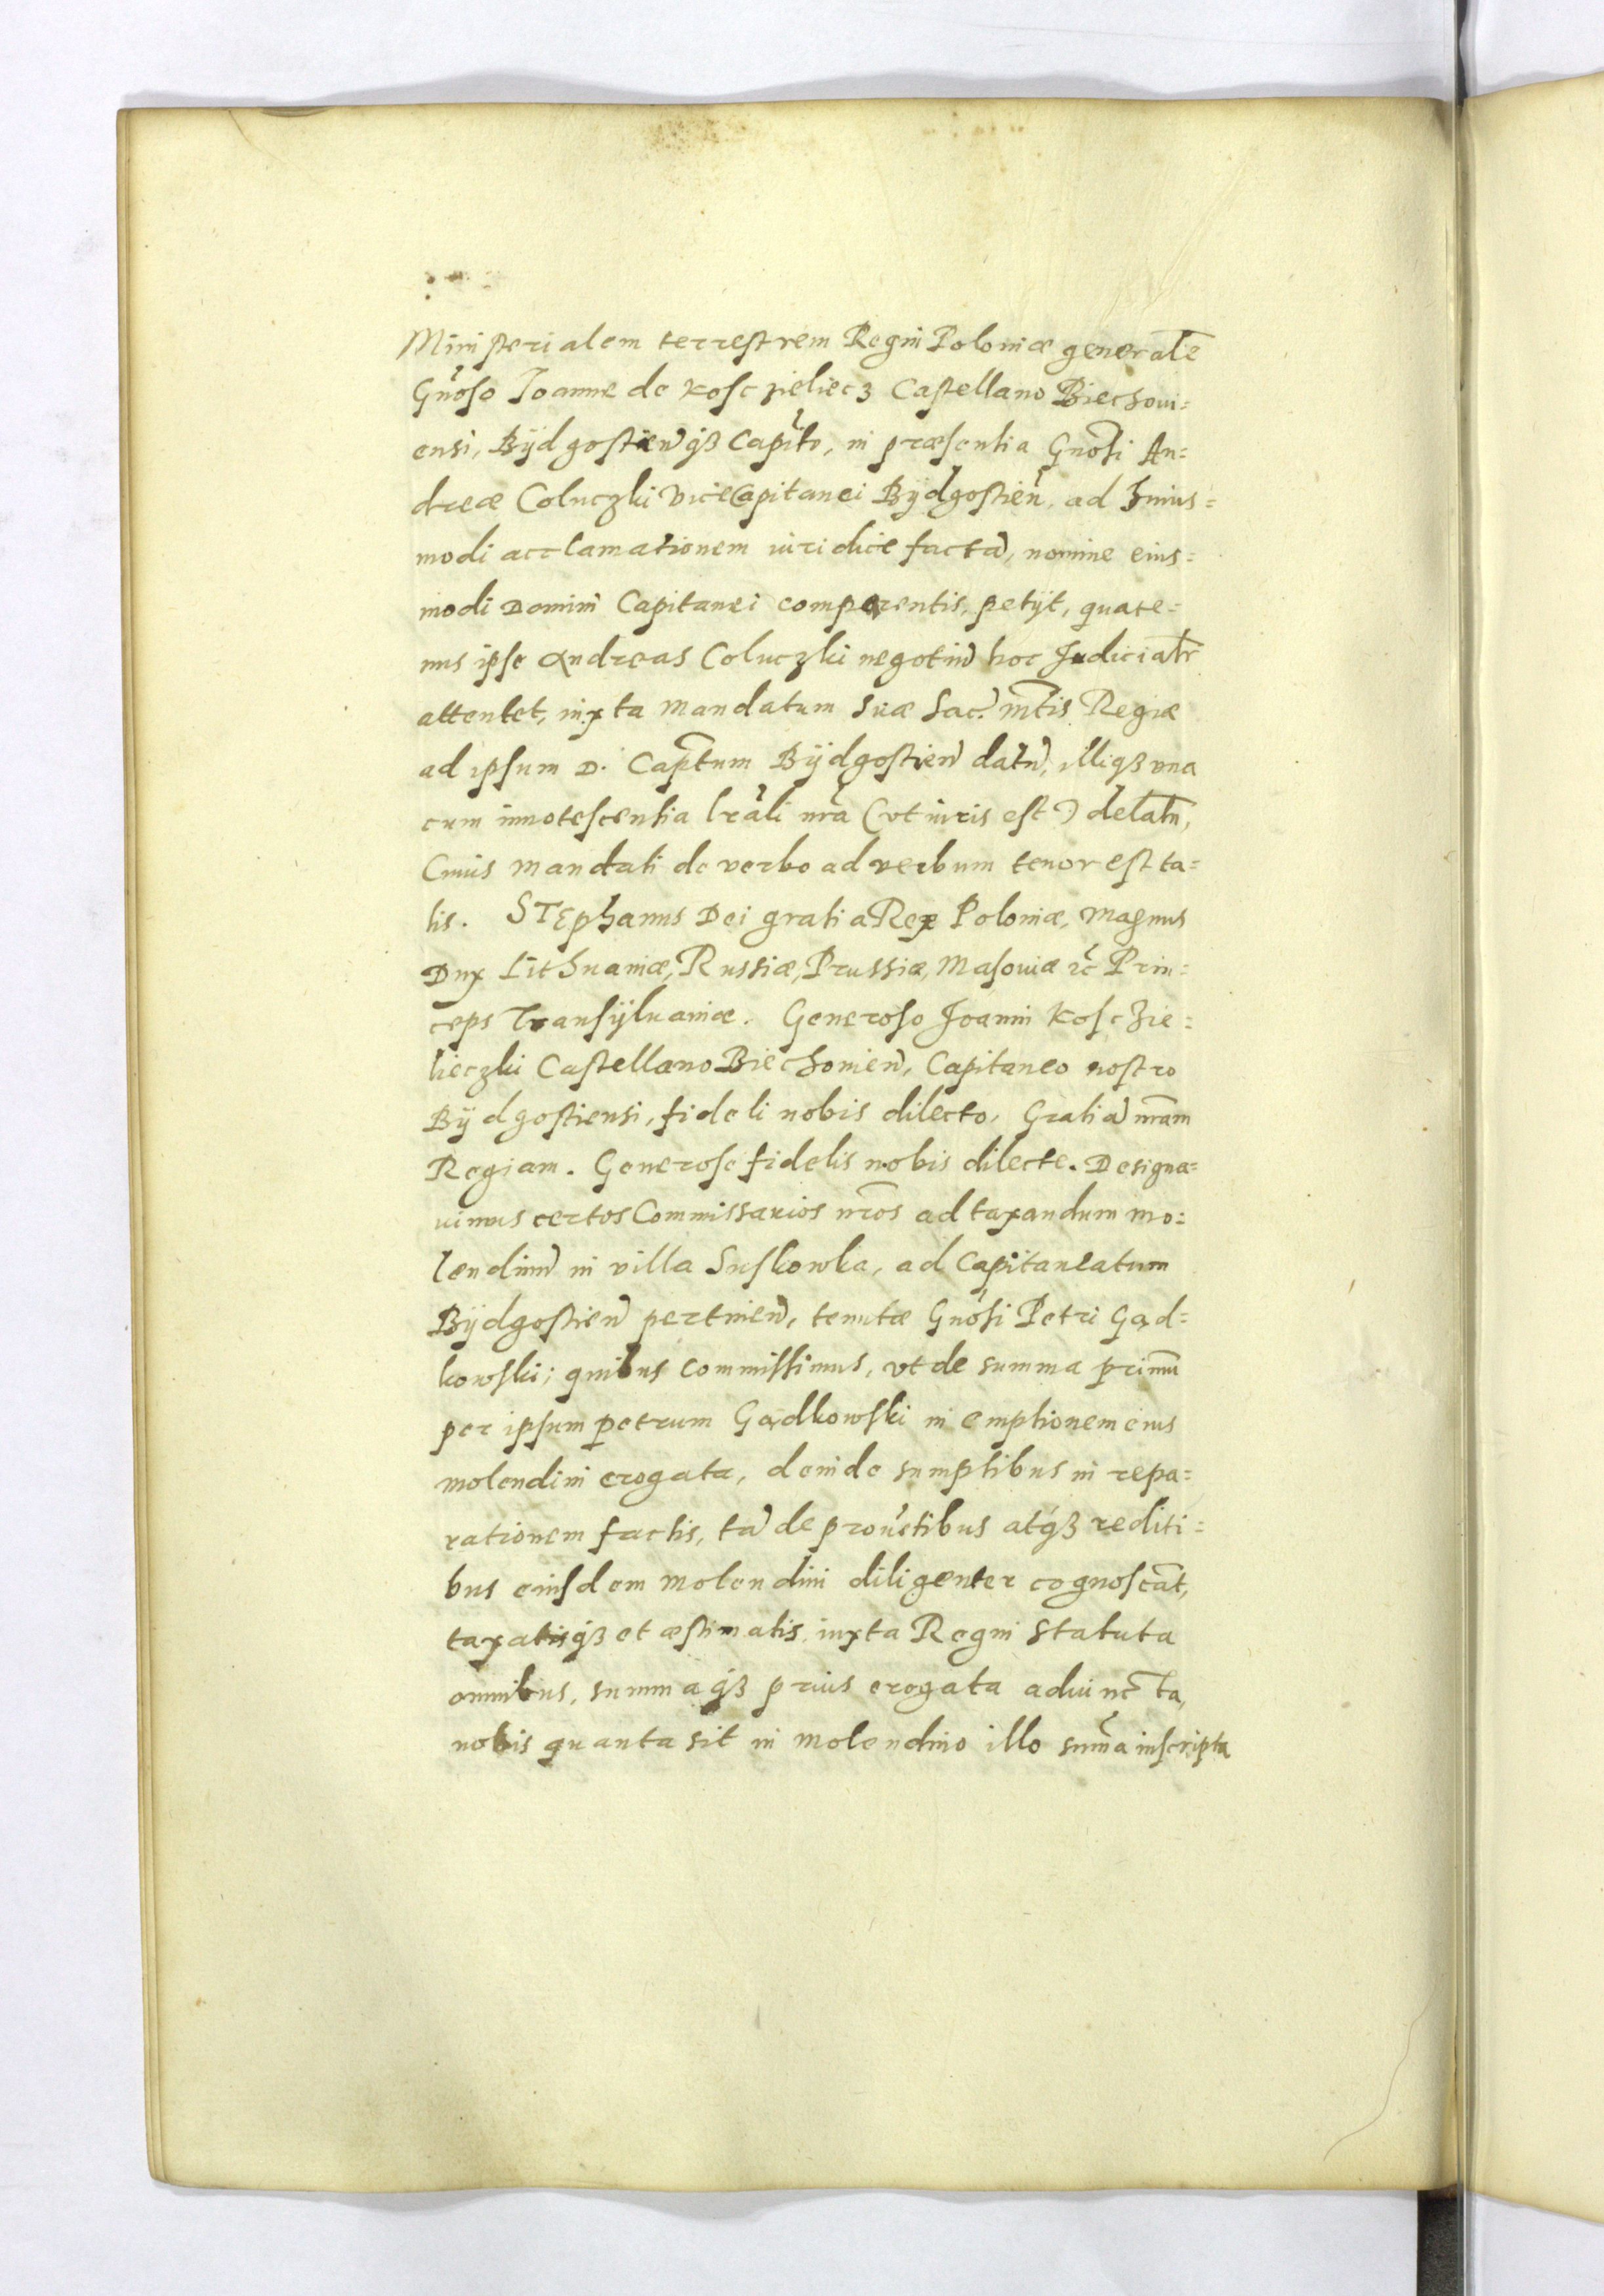 Ministerialem terrestrem Regni Poloniæ generalē
Gnoso Ioanne de Kosczieliecz Castellano Biechoui=
ensi, Bÿdgostien̄ qȝ Capito, in præsentia Gnosi An=
dreæ Coluczki ViceCapitanei Bÿdgostien̄, ad huius=
modi acclamationem iuridice factā, nomine eius=
modi Domini Capitanei comparentis, petÿt, quate=
nus ipse Andreas Coluczki negotiū hoc Judicialr̄
attentet, iuxta mandatum Suæ Sac. mtis Regiæ
ad ipsum D. Captum Bÿdgostien̄ datū, illiqȝ vna
cum innotescentia lrali nra (vt iuris est) delatū,
Cuius mandati de verbo ad verbum tenor est ta=
lis. STEphanus Dei gratia Rex Poloniæ, Magnus
Dux Lithuaniæ, Russiæ, Prussiæ, Masouiæ ꝛc̄ Prin=
ceps Transÿluaniæ. Generoso Joanni Kosczie=
lieczki Castellano Biechouien̄, Capitaneo nostro
Bÿdgostiensi, fideli nobis dilecto, Gratiā nram
Regiam. Generose fidelis nobis dilecte. Designa=
uimus certos Commissarios nros ad taxandum mo=
lendinū in villa Suskowka, ad Capitaneatum
Bÿdgostien̄ pertinen̄, tenutæ Gnosi Petri Gąd=
kowski; quibus commissimus, vt de summa primū
per ipsum Petrum Gądkowski in emptionem eius
molendini erogata, deinde sumptibus in repa=
rationem factis, tā de prouētibus atqȝ rediti=
bus eiusdem molendini diligenter cognoscāt,
taxatisqȝ et æstimatis iuxta Regni Statuta
omnibus, summaqȝ prius erogata adiuncta,
nobis quanta sit in molendino illo suma inscripta